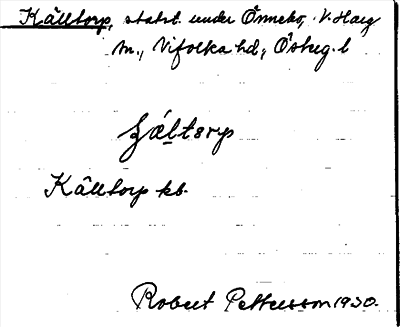 Källtorp, statst. under Önnebo, V. Harg
sn., Vifolka hd., Östeg. l
ɟä́ltɷrp
Källtorp kb.
Robert Pettersson 1930.